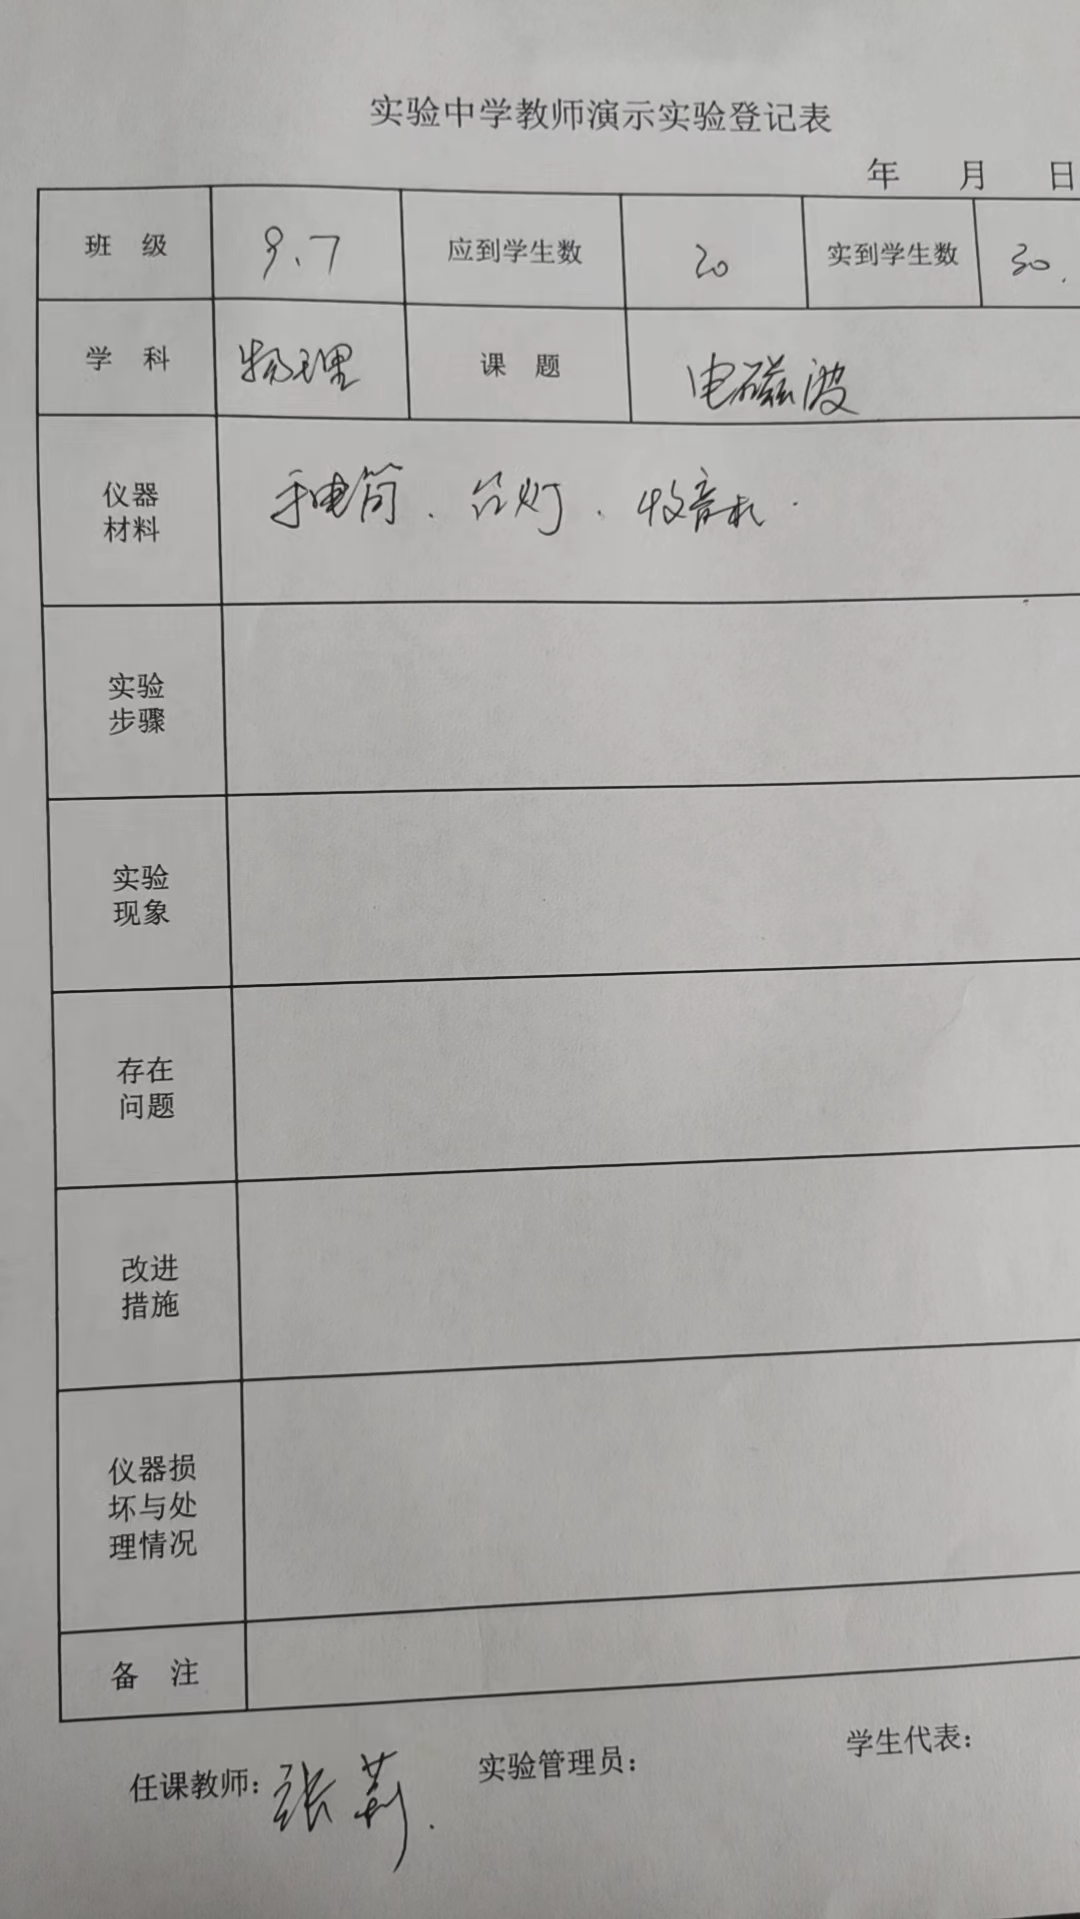 实验中学教师演示实验登记表
年 月 日
班 级 9.7 应到学生数 30 实到学生数 30.
学 科 物理 课 题 电磁波
仪器
材料
手电筒、台灯、收音机.
实验
步骤
实验
现象
存在
问题
改进
措施
仪器损
坏与处
理情况
备 注
任课教师:张莉. 实验管理员: 学生代表: